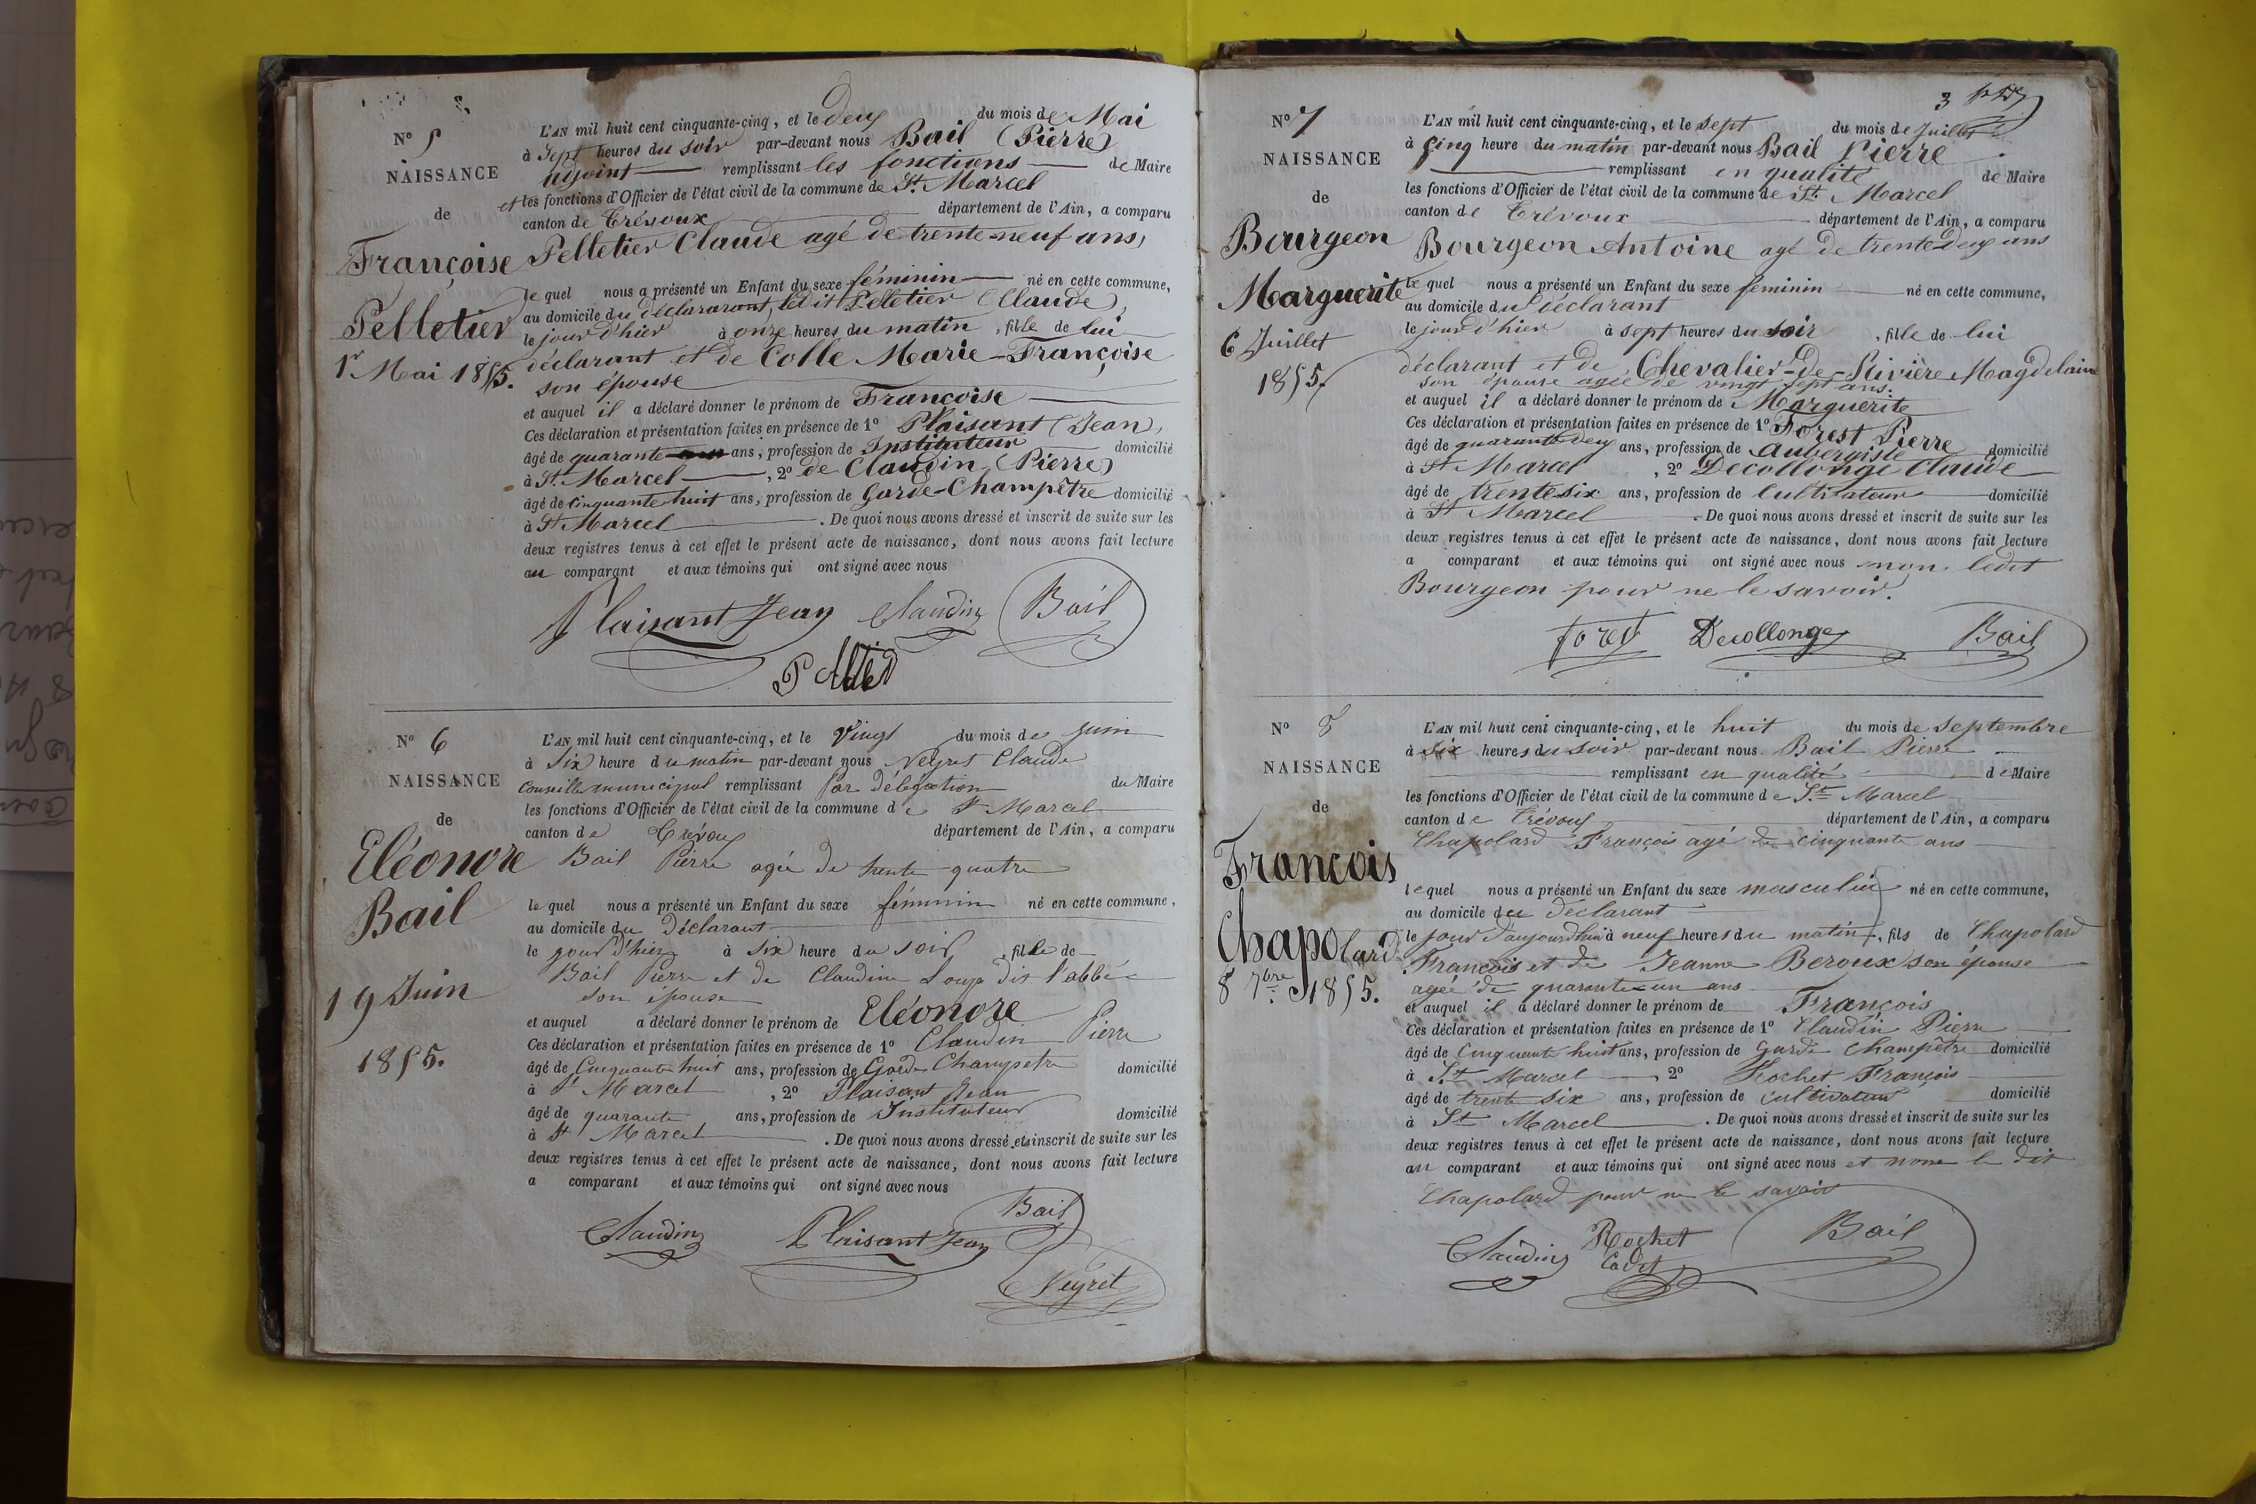 N° 5
NAISSANCE
de
Françoise
Pelletier
1r Mai 1855.
L'AN mil huit cent cinquante-cinq, et le deux du mois de Mai
à Sept heures du soir par-devant nous Bail (Pierre)
adjoint remplissant les fonctions de Maire
et les fonctions d'Officier de l'état civil de la commune de St. Marcel
canton de Trévoux département de l'Ain, a comparu
Pelletier Claude agé de trente-neuf ans,
le quel nous a présenté un Enfant du sexe féminin né en cette commune,
au domicile du déclararant, ledit Pelletier (Claude),
le jour d'hier à onze heures du matin, fille de lui
déclarant et de Colle Marie-Françoise
son épouse
et auquel il a déclaré donner le prénom de Françoise
Ces déclaration et présentation faites en présence de 1° Plaisant (Jean),
âgé de quarante ans, profession de Instituteur domicilié
à St. Marcel, 2° de Claudin (Pierre)
âgé de cinquante huit ans, profession de Garde-Champêtre domicilié
à St Marcel. De quoi nous avons dressé et inscrit de suite sur les
deux registres tenus à cet effet le présent acte de naissance, dont nous avons fait lecture
au comparant et aux témoins qui ont signé avec nous
Plaisant Jean Claudin Bail
N° 6
NAISSANCE
de
Eléonore
Bail
19 Juin
1855.
L'AN mil huit cent cinquante-cinq, et le vingt du mois de juin
à Six heure du matin par-devant nous Neyret Claude
Conseiller municipal remplissant Par délégation du Maire
les fonctions d'Officier de l'état civil de la commune de St Marcel
canton de Trévoux département de l'Ain, a comparu
Bail Pierre agée de trente-quatre
le quel nous a présenté un Enfant du sexe féminin né en cette commune,
au domicile du Déclarant
le jour d'hier à six heure du soir, fille de
Bail Pierre et de Claudine Loup dit l'abbée
son épouse
et auquel a déclaré donner le prénom de Eléonore
Ces déclaration et présentation faites en présence de 1° Claudin Pierre
âgé de Cinquante huit ans, profession de Garde Champetre domicilié
à St Marcel, 2° Plaisant Jean
âgé de quarante ans, profession de Instituteur domicilié
à St Marcel. De quoi nous avons dressé et inscrit de suite sur les
deux registres tenus à cet effet le présent acte de naissance, dont nous avons fait lecture
a comparant et aux témoins qui ont signé avec nous
Bail
Claudin Plaisant Jean
Neyret
3
N° 7
NAISSANCE
de
Bourgeon
Marguerite
6 Juillet
1855.
L'AN mil huit cent cinquante-cinq, et le sept du mois de Juillet
à cinq heure du matin par-devant nous Bail Pierre
remplissant en qualité de Maire
les fonctions d'Officier de l'état civil de la commune de St. Marcel
canton de Trévoux département de l'Ain, a comparu
Bourgeon Antoine agé de trente-deux ans
le quel nous a présenté un Enfant du sexe féminin né en cette commune,
au domicile du déclarant
le jour d'hier à sept heures du soir, fille de lui
déclarant et de Chevalier-de-Rivière Magdelaine
son épouse agée de vingt sept ans.
et auquel il a déclaré donner le prénom de Marguerite
Ces déclaration et présentation faites en présence de 1° Forest Pierre
âgé de quarante deux ans, profession de Aubergiste domicilié
à St Marcel, 2° Decollonge Claude
âgé de trente six ans, profession de Cultivateur domicilié
à St Marcel. De quoi nous avons dressé et inscrit de suite sur les
deux registres tenus à cet effet le présent acte de naissance, dont nous avons fait lecture
a comparant et aux témoins qui ont signé avec nous non ledit
Bourgeon pour ne le savoir.
forest Decollonge Bail
N° 8
NAISSANCE
de
François
Chapolard
8 7bre 1855.
L'AN mil huit cent cinquante-cinq, et le huit du mois de septembre
à six heures du soir par-devant nous Bail Pierre
remplissant en qualité de Maire
les fonctions d'Officier de l'état civil de la commune de St. Marcel
canton de Trévoux département de l'Ain, a comparu
Chapolard François agé de cinquante ans
le quel nous a présenté un Enfant du sexe masculin né en cette commune,
au domicile du déclarant
le jour d'aujourdhui à neuf heures du matin, fils de Chapolard
François et de Jeanne Beroux son épouse
agée de quarante-un ans
et auquel il a déclaré donner le prénom de François
Ces déclaration et présentation faites en présence de 1° Claudin Pierre
âgé de Cinquante huit ans, profession de Garde champêtre domicilié
à St. Marcel, 2° Rochet François
âgé de trente six ans, profession de cultivateur domicilié
à St Marcel. De quoi nous avons dressé et inscrit de suite sur les
deux registres tenus à cet effet le présent acte de naissance, dont nous avons fait lecture
au comparant et aux témoins qui ont signé avec nous et none le dit
Chapolard pour ne le savoir
Claudin Rochet Bail
Cadet